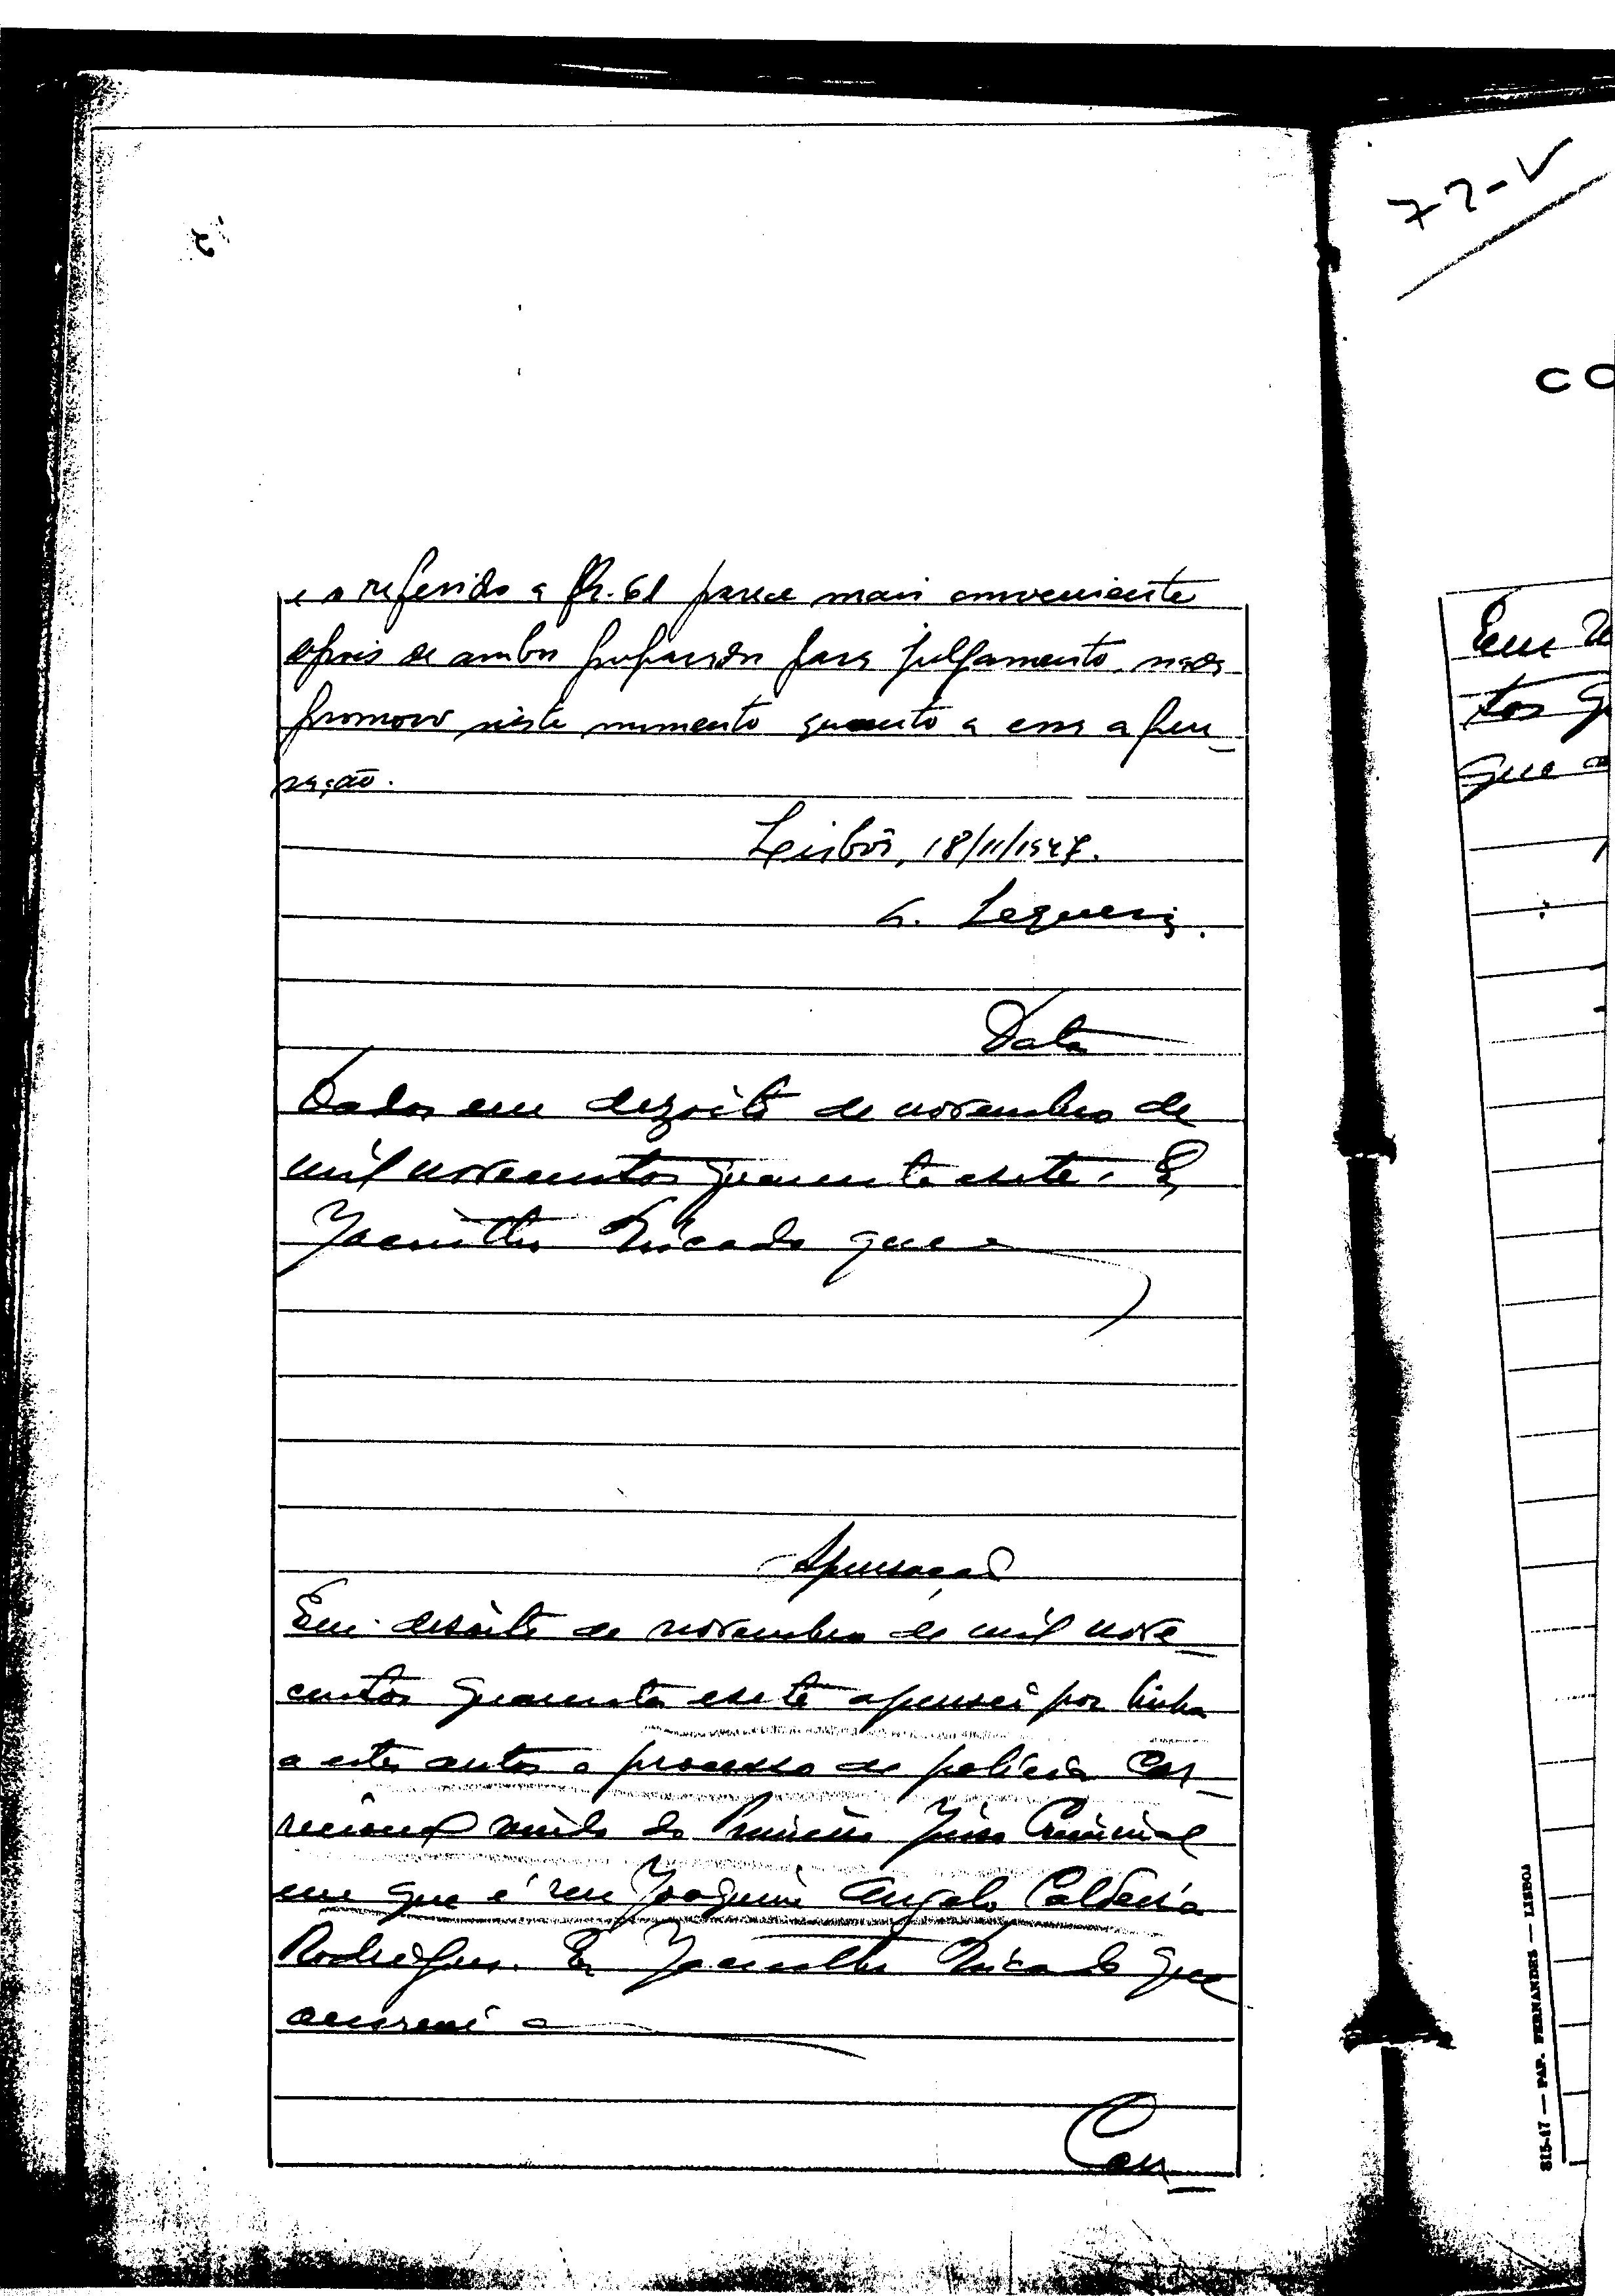 e o referido a fls. 61 parece mais conveniente
depois de ambos preparados para julgamento, nada
promovo neste momento quanto a essa apen-
sação.
Lisboa, 18/11/1947.
Data
Dados em dezoito de novembro de
mil novecentos quarenta e sete. E,
Jacintho que
Apensação
Em dezoito de novembro de mil nove
centos quarenta e sete apensei por linha
a estes autos o processo de policia cor-
recional vindo do Primeiro Juizo Criminal
em que é reu Joaquim Angelo Caldeira
Rodrigues. E, Jacintho que
escrevi
Con
72-V
CO
Em
tos
que
815-47 — PAP. FERNANDES — LISBOA